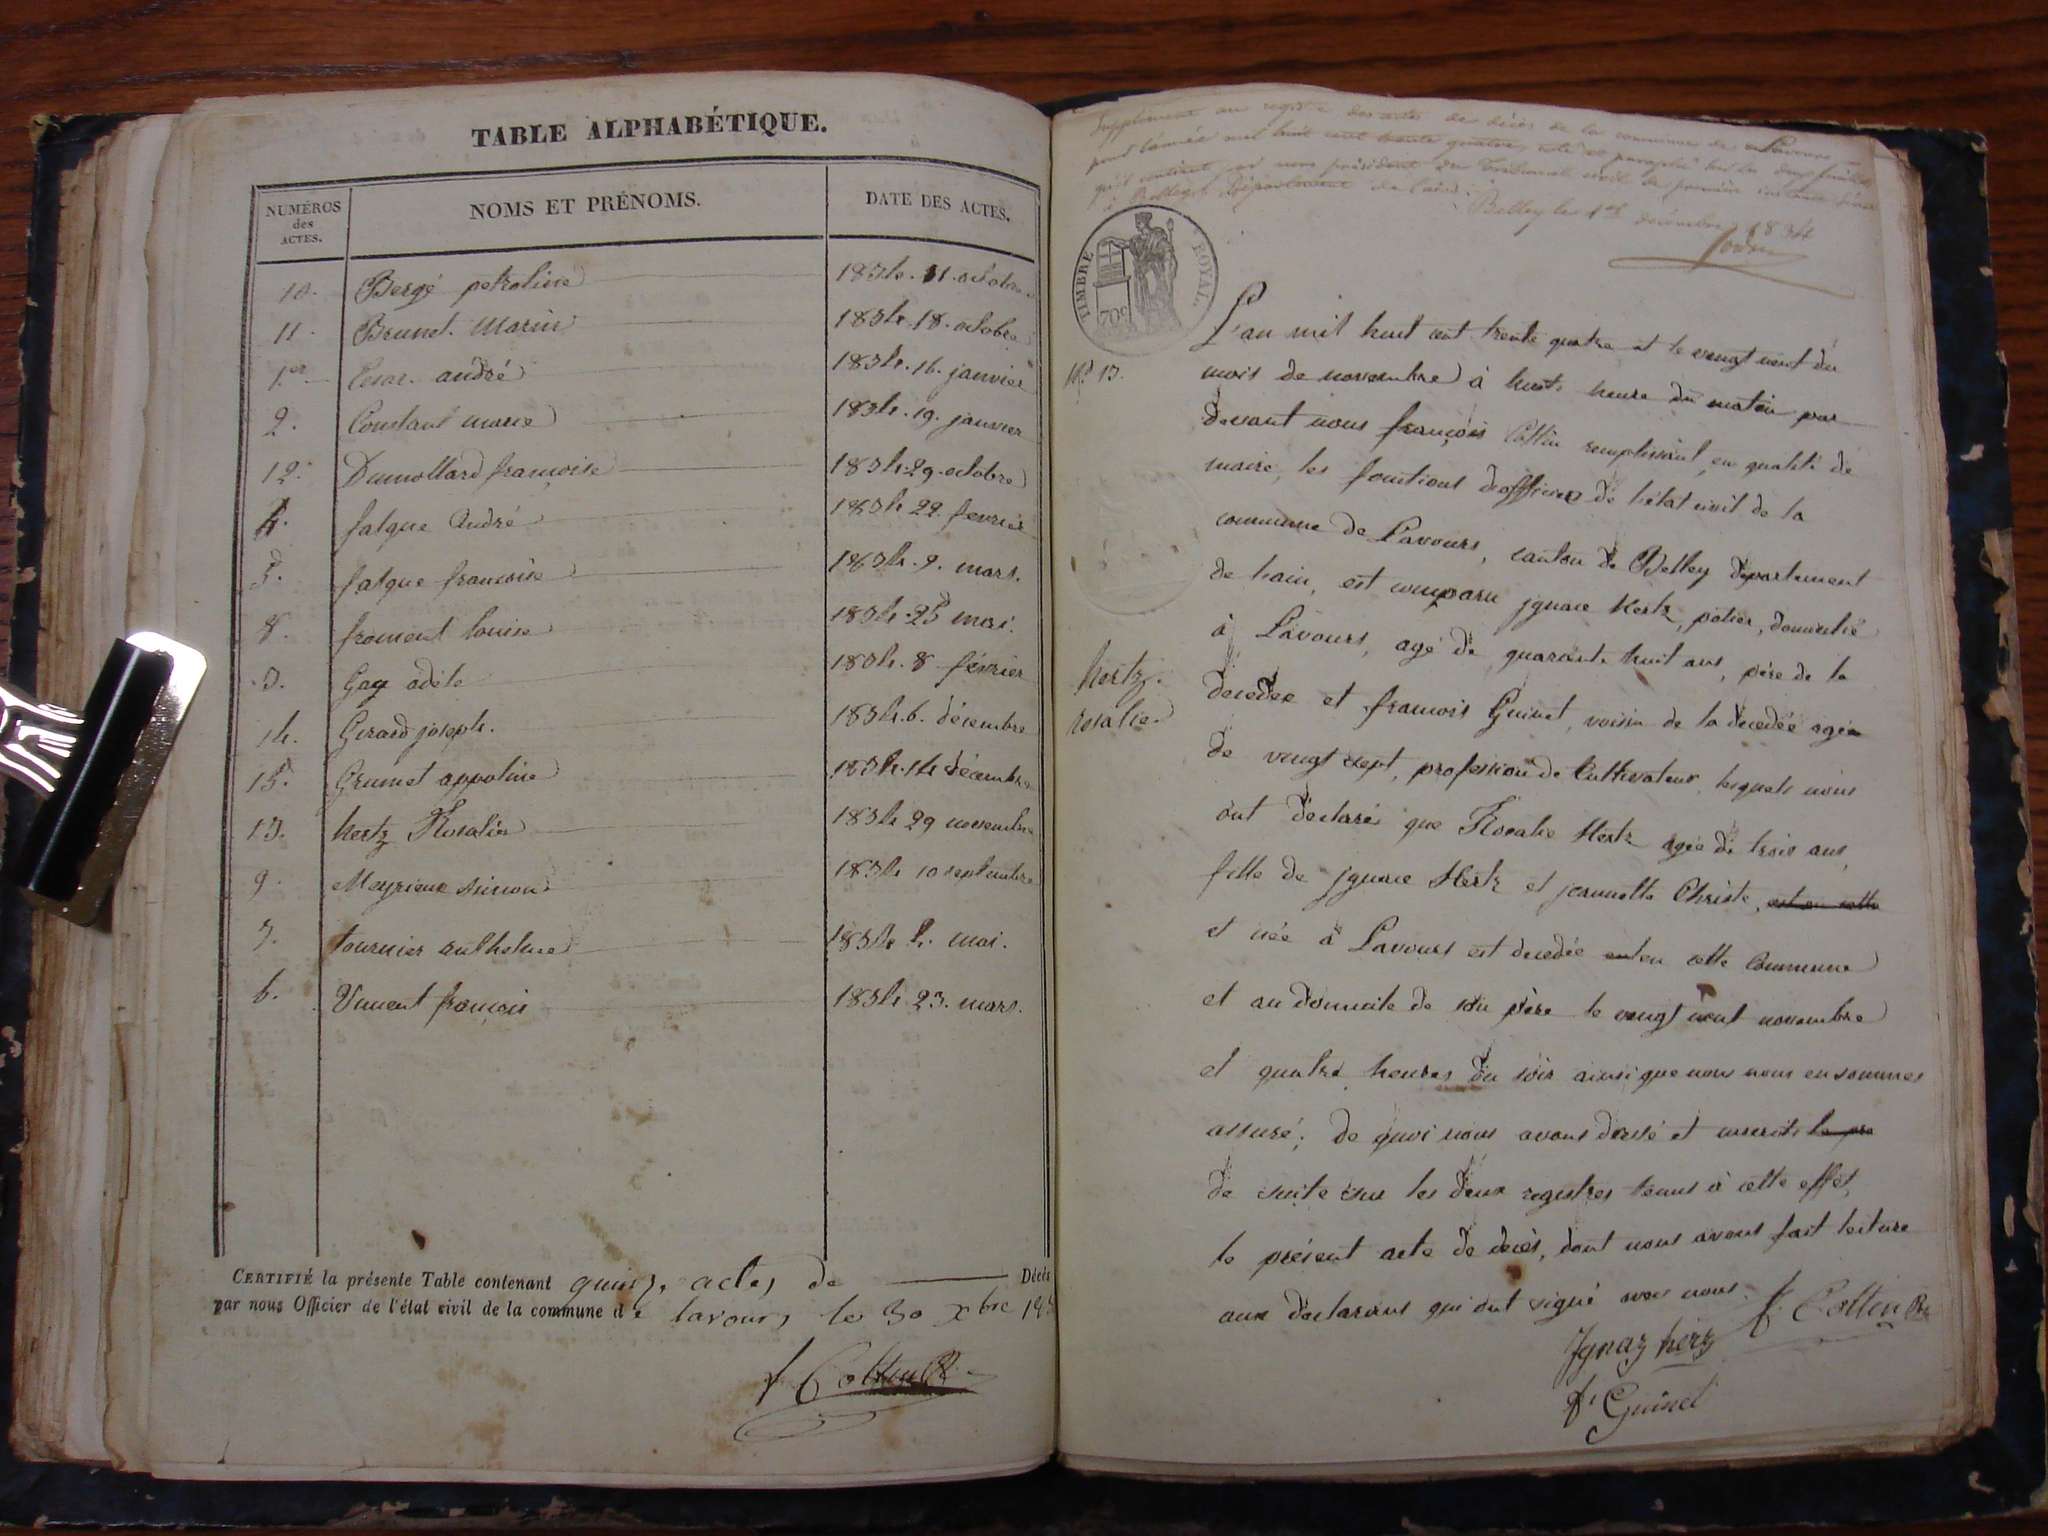 TABLE ALPHABÉTIQUE.
NUMÉROS des ACTES. NOMS ET PRÉNOMS. DATE DES ACTES.
10. Bergé petroline 1834. 11. octobre
11. Brunet. Marin 1834. 18. octobre
1.er andré 1834. 16. janvier
2. Constant marie 1834. 19. janvier
12. Dumollard françoise 1834. 29. octobre
4. falque André 1834 22. fevrier
5. falque francoise 1834. 9. mars.
8. froment louise 1834. 25 mai.
3. Gay adèle 1834. 8 février
14. Gerard joseph. 1834. 6. décembre
15. appoline 1834. 14 décembre
13. hertz Rosalie 1834 29 novembre
9. Meyrieux simon 1834 10 septembre
7. tournier anthelme 1834 4. mai.
6. Vincent françois 1834. 23. mars.
CERTIFIÉ la présente Table contenant quinze actes de Décès
par nous Officier de l'état civil de la commune de lavours le 30 Xbre 183
f Cottin
Supplément au registre des actes de décès de la commune de Lavours
pour l'année mil huit cent trente quatre, coté et paraphé sur les deux feuillets
qu'il contient par nous président du Tribunal civil de première instance
à Belley Département de l'ain.
Belley le 1er décembre 1834
TIMBRE ROYAL.
70c
L'an mil huit cent trente quatre et le vingt neuf du
N.o 13. mois de novembre à huit heure du matin par
devant nous françois Cottin remplissant, en qualité de
maire, les fonctions d'officier de l'état civil de la
commune de Lavours, canton de Belley département
de l'ain, est comparu jgnace Hertz, potier, domicilié
à Lavours, agé de quarante huit ans, père de la
hertz. decedée et francois Guinet, voisin de la decedée agée
rosalie de vingt sept, profession de Cultivateur, lesquels nous
ont déclarés que Rosalie Hertz agée de trois ans,
fille de jgnace Hertz et jeannette Christe, est en cette
et née à Lavours est decedée en en cette Commune
et au domicile de son père le vingt neuf novembre
et quatre heures du soir ainsi que nous nous en sommes
assuré; de quoi nous avons dressé et inscrits le pre
de suite sur les deux registres tenus à cette effet,
le présent acte de decès, dont nous avons fait lecture
aux declarans qui ont signé avec nous.
f. Cottin
Ignaz herz
f. Guinet